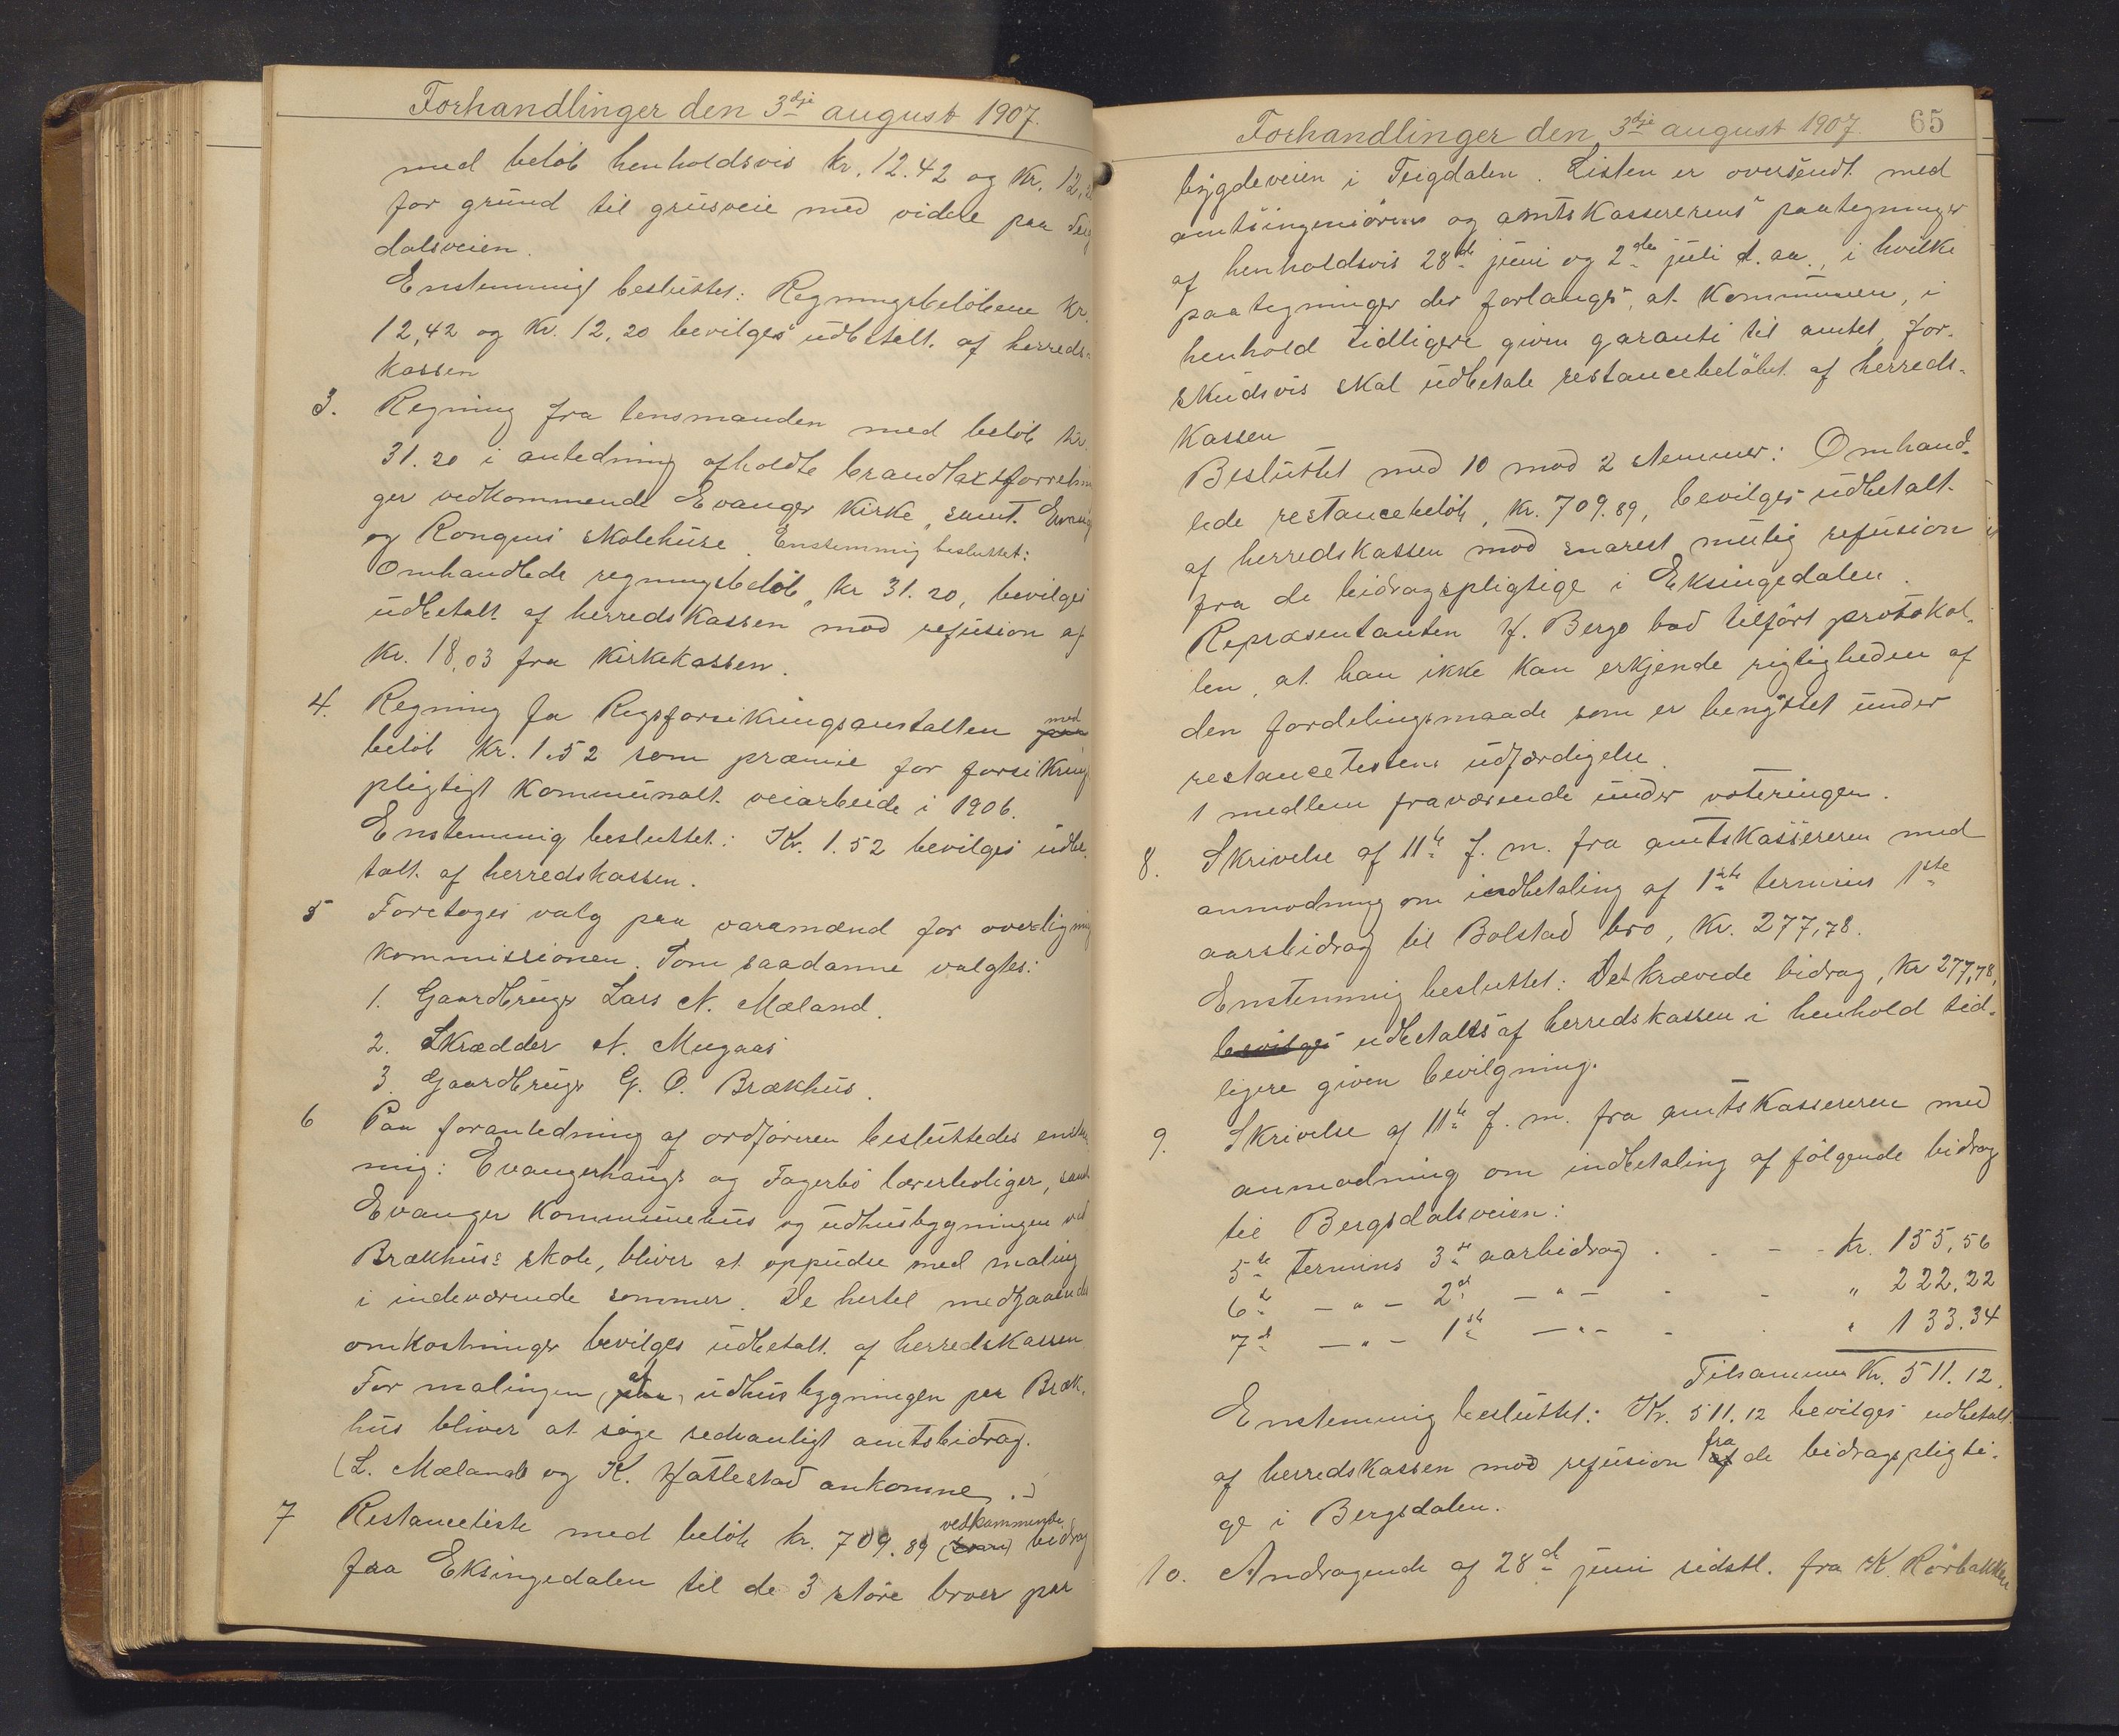 Forhandlinger den 3dje august 1907.
med beløb henholdsvis kr. 12.42 og Kr. 12,20
for grund til grusveie med videre paa Teig
dalsveien.
Enstemmigt besluttet: Regningsbeløbene Kr.
12,42 og Kr. 12,20 bevilges udbetalt af herreds-
kassen
3. Regning fra lensmanden med beløb kr.
31.20 i anledning afholdte brandtaxtforretnin
ger vedkommende Evanger kirke, samt Evang
og Rongvei skolehuse. Enstemmig besluttet:
Omhandlede regningsbeløb, kr 31.20, bevilges
udbetalt af herredskassen mod refusion af
Kr. 18,03 fra Kirkekassen.
4. Regning fa Rigsforsikringsanstalten med
beløb Kr. 1.52 som præmie for forsikring
pligtigt kommunalt veiarbeide i 1906.
Enstemmig besluttet: Kr. 1.52 bevilges udbe-
talt af herredskassen.
5 Foretoges valg paa varamænd for overligning
kommissionen. Som saadanne valgtes:
1. Gaardbruger Lars N. Mæland.
2. Skrædder N. Mugaas
3. Gaardbruger G. O. Brækhus.
6 Paa foranledning af ordføreren besluttedes enstem
mig: Evangerhaugs og Fagerbo lærerboliger, samt
Evanger kommunehus og udhusbygningen ved
Brækhus: skole, bliver at oppudse med maling
i indeværende sommer. De hertil medgaaende
omkostninger bevilges udbetalt af herredskassen
For malingen af udhusbygningen paa Bræk-
hus bliver at søge sedvanligt amtsbidrag.
(L. Mæland og K. Hattestad ankomne.)
7 Restanceliste med beløb kr. 709.89 vedkommende bidrag
fra Eksingedalen til de 3 store broer paa
Forhandlinger den 3dje august 1907. 65
bygdeveien i Teigdalen. Listen er oversendt med
amtsingeniørens og amtskassererens paategninger
af henholdsvis 28de juni og 2den juli d. aa., i hvilke
paategninger der forlanges, at kommunen, i
henhold tidligere given garanti til amtet, for-
skudsvis skal udbetale restancebeløbet af herreds-
kassen
Besluttet med 10 mod 2 stemmer: Omhand-
lede restancebeløb, kr. 709.89, bevilges udbetalt
af herredskassen mod snarest mulig refusion
fra de bidragspligtige i Eksingedalen.
Repræsentanten H. Bergo bad tilført protokol-
len, at han ikke kan erkjende rigtigheden af
den fordelingsmaade som er benyttet under
restancelistens udfærdigelse.
1 medlem fraværende under voteringen.
8. Skrivelse af 11te f. m. fra amtskassereren med
anmodning om indbetaling af 1ste termins 1ste
aarsbidrag til Bolstad bro, Kr. 277,78.
Enstemmig besluttet: Det krævede bidrag, kr 277,78,
bevilges udbetales af herredskassen i henhold tid-
ligere given bevilgning.
9. Skrivelse af 11te f. m. fra amtskassereren med
anmodning om indbetaling af følgende bidrag
til Bergsdalsveien:
5te termins 3die aarbidrag . - - - kr. 155,56
6te - " - 2det - " - - - " 222,22
7de - " - 1ste - " - - . " 133.34
Tilsammen Kr. 511.12.
Enstemmig besluttet: Kr. 511.12 bevilges udbetalt
af herredskassen mod refusion fra de bidragspligti-
ge i Bergsdalen.
10. Andragende af 28de juni sidstl. fra K. Rørbakken